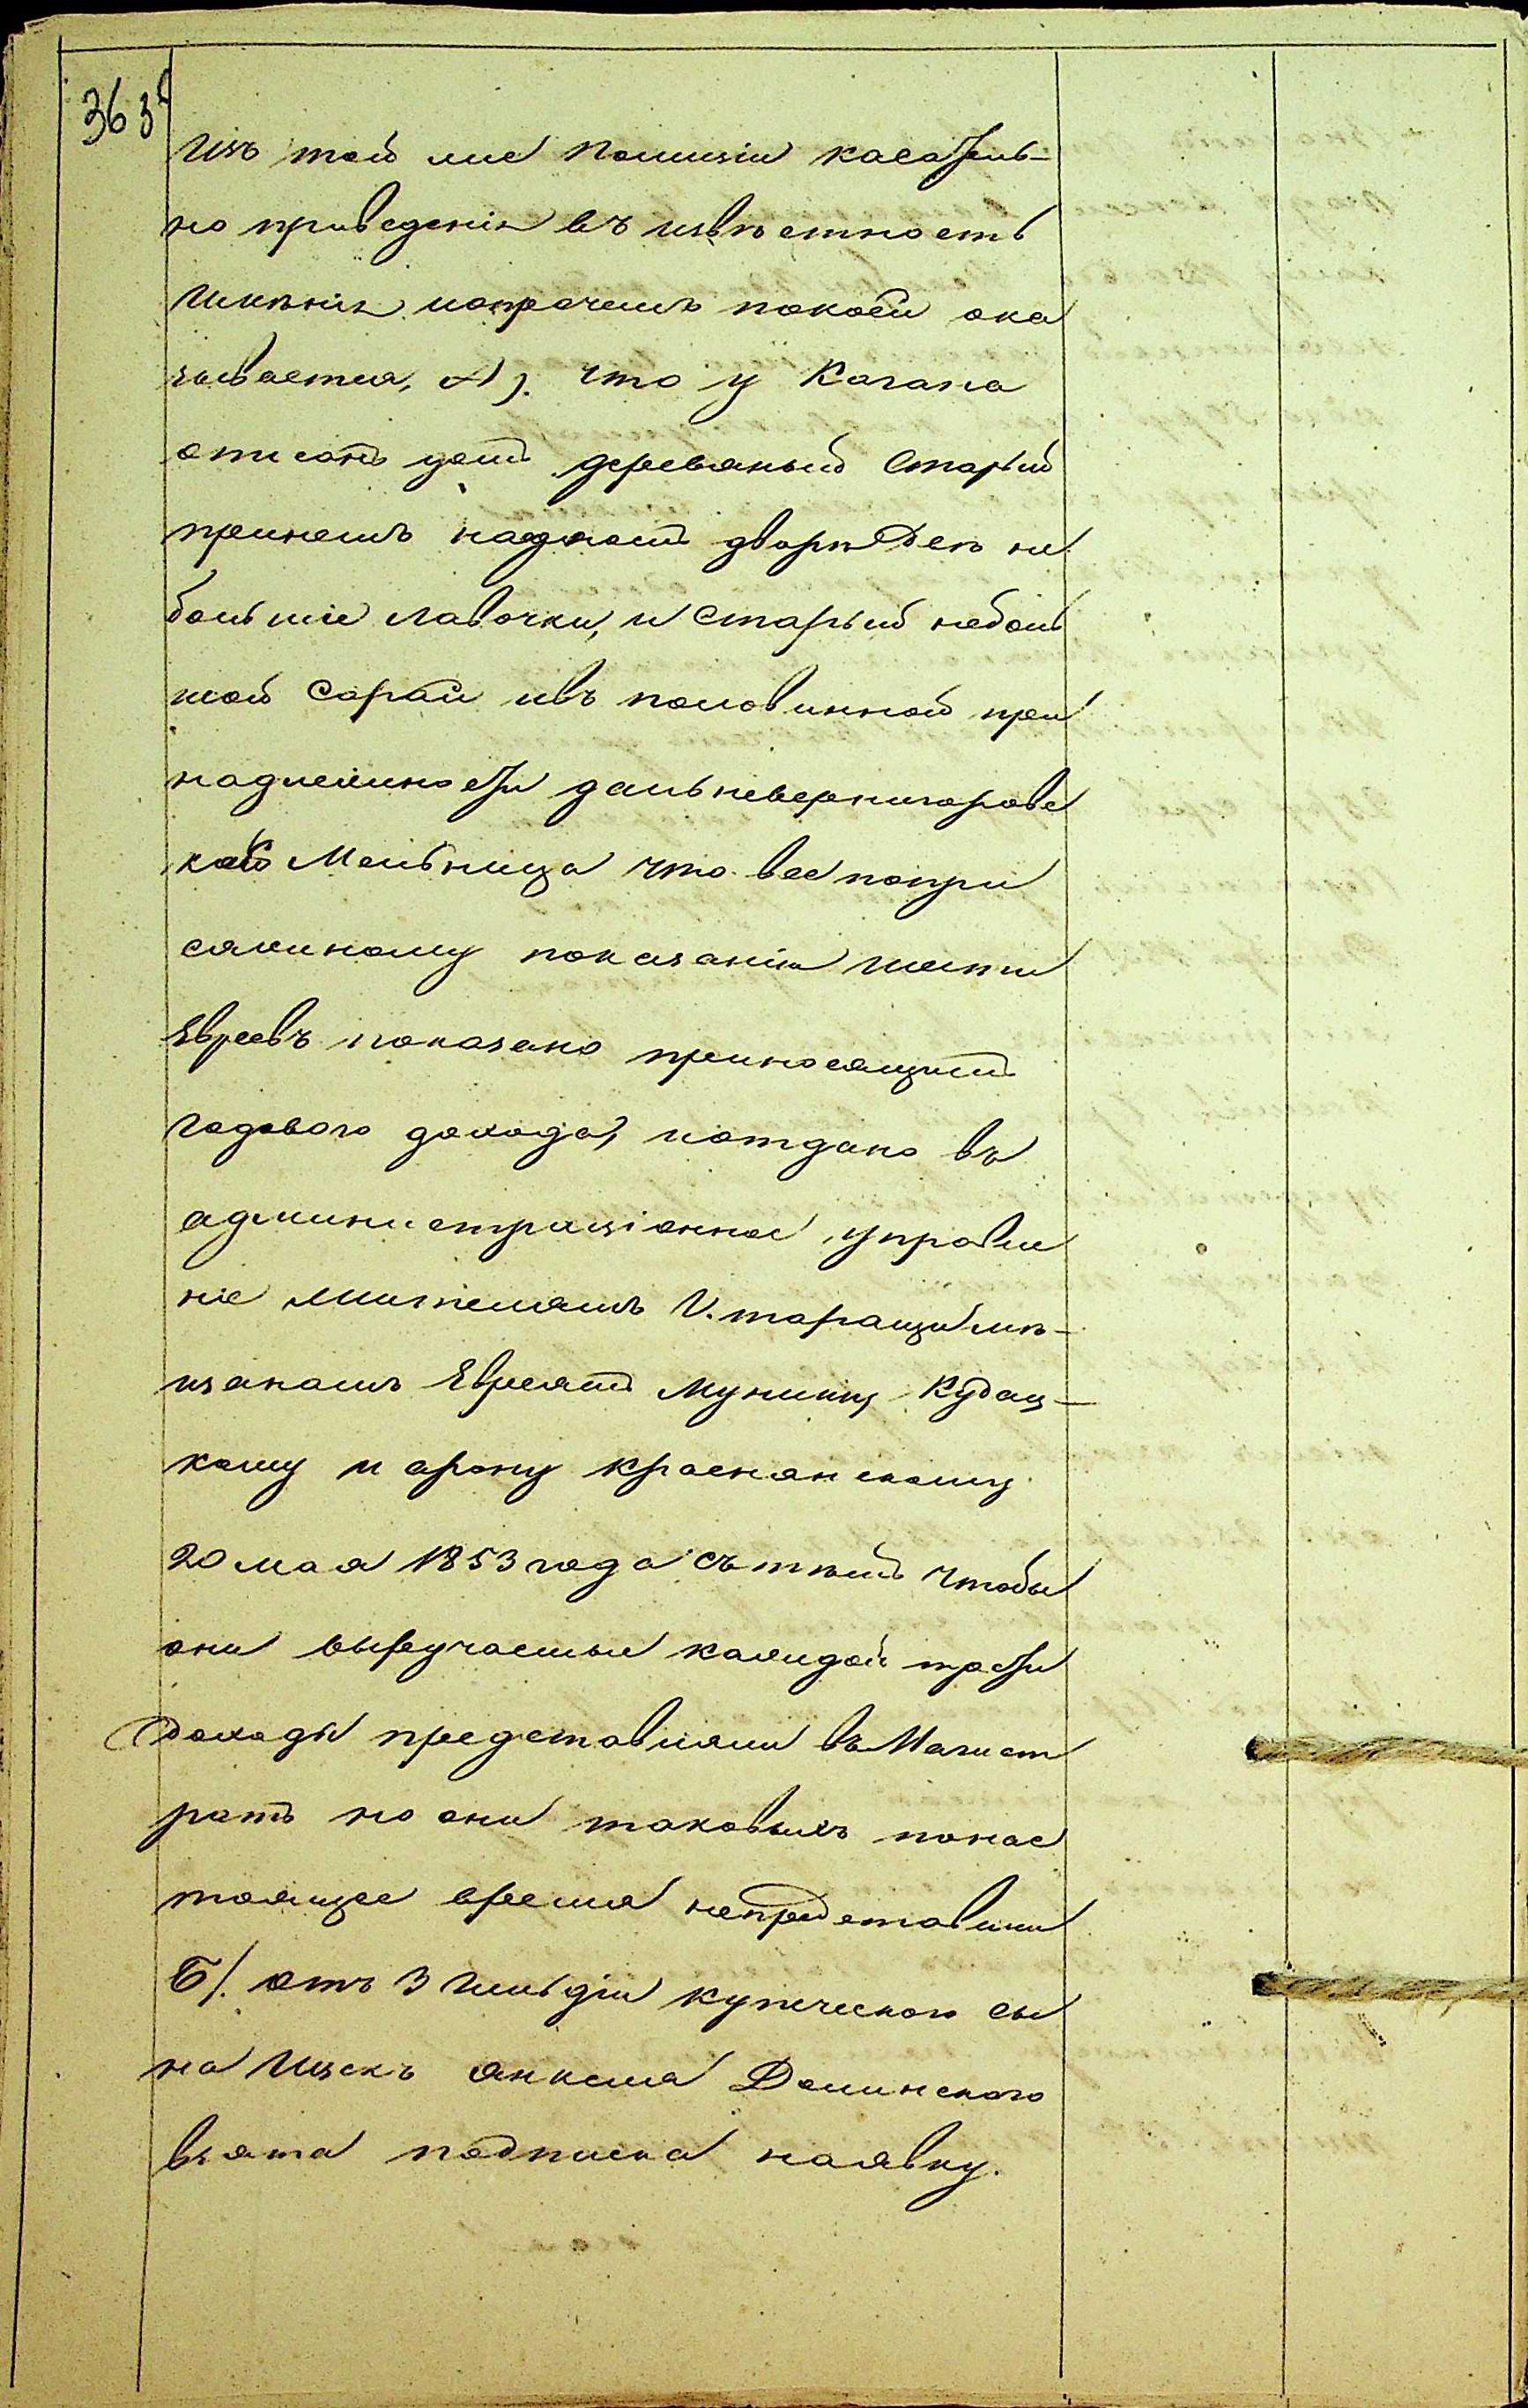 363
Изъ той же полиціи касатель-
но приведенія въ извѣстность
имѣнія и опрочемъ покоем ока
зывается, А). что у Когана
описанъ домъ деревяный старый
при немъ на дворѣ двѣ не
большіе лавочки, и старый неболь
шой сарай изъ половинной при
надлежности
кой мельница что все попри
сяжному показанію шести
Евреевъ показано приносящимъ
годового дохода, и отдано въ
администраціонное управле
ніе жителямъ г. таращи мѣ-
щанамъ Евреямъ Мунишу Кудац-
кому и арону краснянскому
20 мая 1853 года съ тѣмъ чтобы
они выручаемые каждой трети
доходы представляли въ Магист
ратъ но они таковыхъ понас
тоящее время непредставили
Б). отъ 3 гильдіи купеческого сы
на Ицекъ Янкеля Долинского
взята подписка наявку.